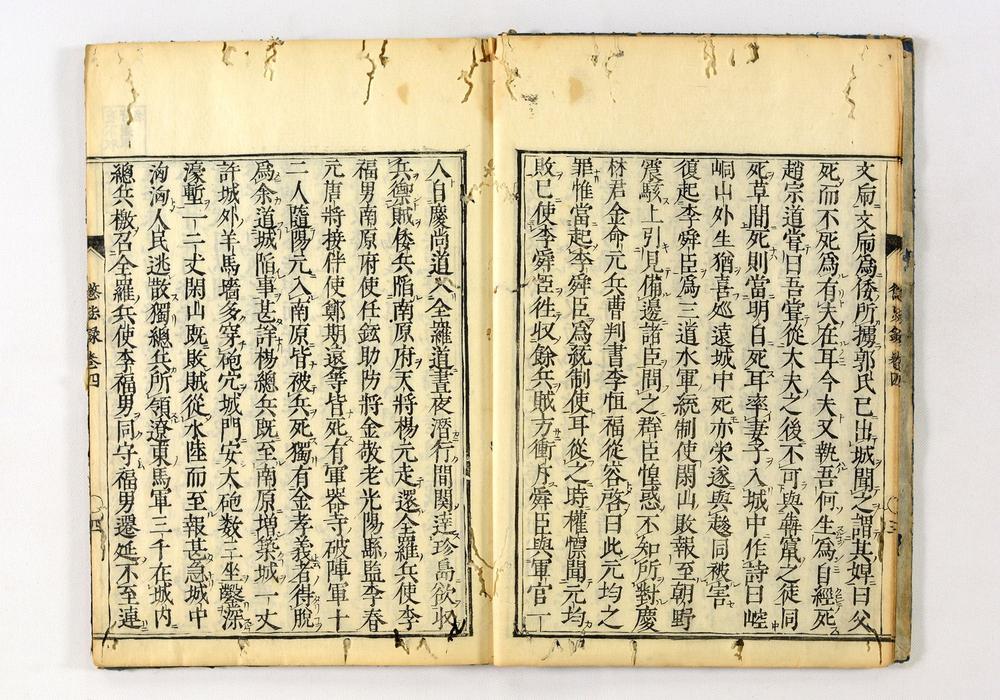 文甫文甫爲倭所擄郭氏已出城聞之謂其婢曰父
死而不死爲有夫在耳今夫又執吾何生爲自經死
趙宗道嘗曰吾嘗從大夫之後不可與奔竄之徒同
死草間死則當明白死耳率妻子入城中作詩曰崆
峒山外生猶喜巡遠城中死亦栄遂與䞭同被害
復起李舜臣爲三道水軍統制使閑山敗報至朝野
震駭上引見備邊諸臣問之群臣惶惑不知所對慶
林君金命元兵曹判書李恒福從容啓曰此元均之
罪惟當起李舜臣爲統制使耳從之時權慄聞元均
敗已使李舜臣徃収餘兵賊方衝斥舜臣與軍官一
人自慶尚道入全羅道晝夜潛行間関達珍島欲収
兵禦賊倭兵陷南原府天將楊元走還全羅兵使李
福男南原府使任鉉助防將金敬老光陽縣監李春
元唐將接伴使鄭期遠等皆死有軍器寺破陣軍十
二人隨楊元入南原皆被兵死獨有金孝義者得脫
爲余道城陷事甚詳楊總兵既至南原増築城一丈
許城外羊馬墻多穿砲穴城門安大砲数三坐鑿深
濠塹一二丈閑山既敗賊從水陸而至報甚急城中
洶洶人民逃散獨總兵所領遼東馬軍三千在城内
總兵檄召全羅兵使李福男同守福男遷延不至連
懲毖録 卷四
三
懲毖録 卷四
四